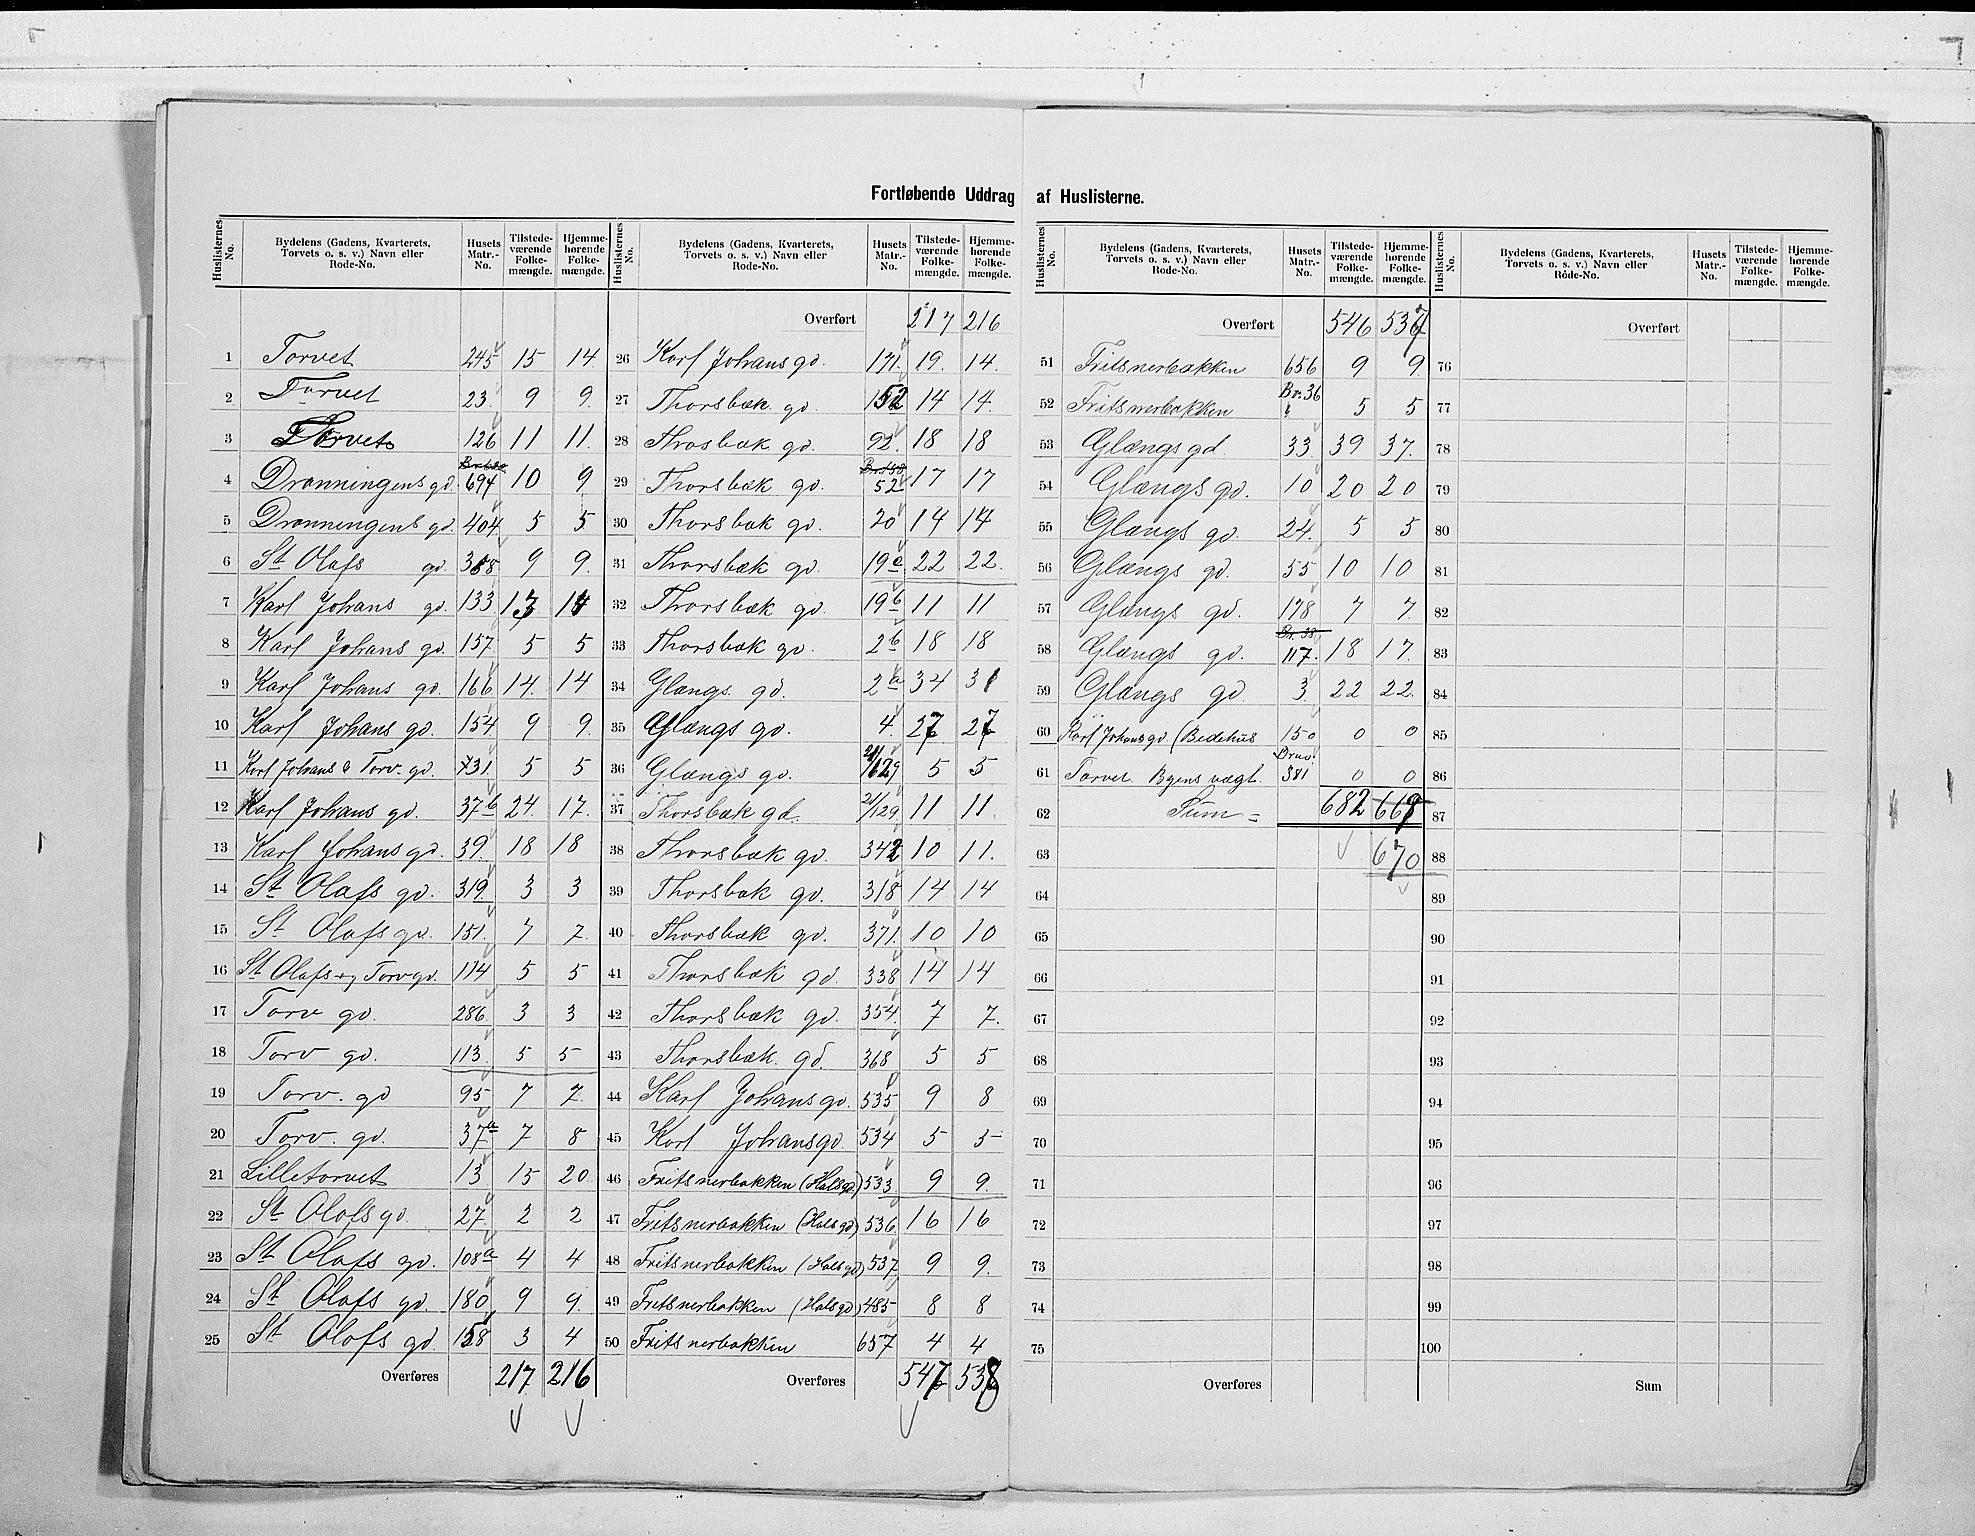 Fortløbende Uddrag af Huslisterne.
Huslisternes No. | Bydelens (Gadens, Kvarterets, Torvets o. s. v.) Navn eller Rode-No. | Husets Matr.-No. | Tilstedeværende Folkemængde. | Hjemmehørende Folkemængde.
1 Torvet 245 15 14
2 Torvet 23 9 9.
3 Torvet 126 11 11.
4 Dronningens gd. 694 10 9
5 Dronningens gd. 404 5 5
6 St Olafs gd. 388 9 9.
7 Karl Johans gd. 133 13 14
8 Karl Johans gd. 157 5 5
9 Karl Johans gd. 166 14. 14
10 Karl Johans gd. 154 9 9.
11 Karl Johans & Torv. gd. 731. 5 5
12 Karl Johans gd. 37b 24. 17.
13 Karl Johans gd. 39. 18 18
14 St Olafs gd. 319. 3 3
15 St Olafs gd. 151. 7 7.
16 St Olafs og Torv gd. 114 5 5
17 Torv gd. 286. 3 3
18 Torv gd. 113. 5 5
19 Torv. gd 95 7 7.
20 Torv. gd. 37a 7 8
21 Lilletorvet 13 15 20
22 St Olafs gd. 27 2 2
23 St Olafs gd. 108a 4 4
24 St Olafs gd. 180 9 9.
25 St Olafs gd 158 3 4
Overføres 217 216
Huslisternes No. | Bydelens (Gadens, Kvarterets, Torvets o. s. v.) Navn eller Rode-No. | Husets Matr.-No. | Tilstedeværende Folkemængde. | Hjemmehørende Folkemængde.
Overført 217 216
26 Karl Johans gd. 171. 19. 14.
27 Thorsbæk gd. 152 14 14.
28 Throsbæk gd. 92. 18 18
29 Thorsbæk gd. 52 17 17
30 Thorsbæk gd. 20 14 14
31 Thorsbæk gd. 19a 22 22.
32 Thorsbæk gd. 19b 11 11
33 Thorsbæk gd. 2b 18 18
34 Glængs gd. 2a 34 31
35 Glængs gd. 4. 27 27
36 Glængs gd. 5 5
37 Thorsbæk gd. 21/129 11 11.
38 Thorsbæk gd. 342 10 11.
39 Thorsbæk gd. 318 14 14
40 Thorsbæk gd. 371. 10 10
41 Thorsbæk gd. 338 14 14
42 Thorsbæk gd. 354. 7 7.
43 Thorsbæk. gd. 368 5 5
44 Karl Johans gd. 535 9 8
45 Karl Johans gd. 534 5 5
46 Fritsnerbakken (Hals gd.) 533 9 9.
47 Fritsnerbakken (Hals gd) 536 16 16
48 Fritsnerbakken (Hals gd) 537 9 9.
49 Fritsnerbakken (Hals gd) 485 8 8
50 Fritsnerbakken 657 4 4
Overføres 546 538
Huslisternes No. | Bydelens (Gadens, Kvarterets, Torvets o. s. v.) Navn eller Rode-No. | Husets Matr.-No. | Tilstedeværende Folkemængde. | Hjemmehørende Folkemængde.
Overført 546 537
51 Fritsnerbakken 656 9 9
52 Fritsnerbakken Br. 36 5 5
53 Glængs gd. 33 39 37.
54 Glængs gd. 10 20 20
55 Glængs gd. 24. 5 5
56 Glængs gd. 55 10 10
57 Glængs gd. 178 7 7.
58 Glængs gd. 117. 18 17.
59 Glængs gd 3. 22 22.
60 Karl Johans gd (Bedehus 150 0 0
61 Torvet Byens vagt. 381 0 0
62 Sum = 682 668
63 670
64
65
66
67
68
69
70
71
72
73
74
75
Overføres
Huslisternes No. | Bydelens (Gadens, Kvarterets, Torvets o. s. v.) Navn eller Rode-No. | Husets Matr.-No. | Tilstedeværende Folkemængde. | Hjemmehørende Folkemængde.
Overført
76
77
78
79
80
81
82
83
84
85
86
87
88
89
90
91
92
93
94
95
96
97
98
99
100
Sum